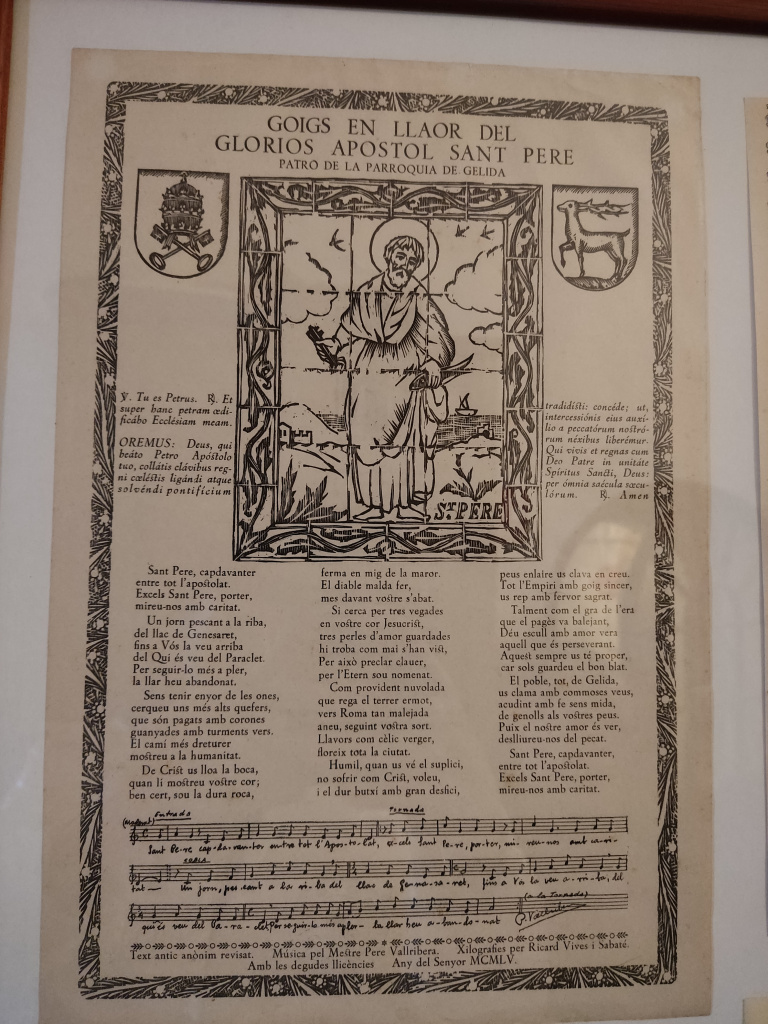 GOIGS EN LLAOR DEL
GLORIOS APOSTOL SANT PERE
PATRÓ DE LA PARROQUIA DE GELIDA
℣. Tu es Petrus. ℟. Et
super hanc petram ædi-
ficábo Ecclésiam meam.
OREMUS: Deus, qui
beáto Petro Apóstolo
tuo, collátis clávibus reg-
ni cœléstis ligándi atque
solvéndi pontifícium
tradidísti: concéde; ut,
intercessiónis eius auxí-
lio a peccatórum nostró-
rum néxibus liberémur.
Qui vivis et regnas cum
Deo Patre in unitáte
Spíritus Sancti, Deus:
per ómnia saécula sæcu-
lórum. ℟. Amen
ST. PERE
Sant Pere, capdavanter
entre tot l'apostolat.
Excels Sant Pere, porter,
mireu-nos amb caritat.
Un jorn pescant a la riba,
del llac de Genesaret,
fins a Vós la veu arriba
del Qui és veu del Paraclet.
Per seguir-lo més a pler,
la llar heu abandonat.
Sens tenir enyor de les ones,
cerqueu uns més alts quefers,
que són pagats amb corones
guanyades amb turments vers.
El camí més dreturer
mostreu a la humanitat.
De Crist us lloa la boca,
quan li mostreu vostre cor;
ben cert, sou la dura roca,
ferma en mig de la maror.
El diable malda fer,
mes davant vostre s'abat.
Si cerca per tres vegades
en vostre cor Jesucrist,
tres perles d'amor guardades
hi troba com mai s'han vist,
Per això preclar clauer,
per l'Etern sou nomenat.
Com provident nuvolada
que rega el terrer ermot,
vers Roma tan malejada
aneu, seguint vostra sort.
Llavors com cèlic verger,
floreix tota la ciutat.
Humil, quan us vé el suplici,
no sofrir com Crist, voleu,
i el dur butxí amb gran desfici,
peus enlaire us clava en creu.
Tot l'Empiri amb goig sincer,
us rep amb fervor sagrat.
Talment com el gra de l'era
que el pagès va balejant,
Déu escull amb amor vera
aquell que és perseverant.
Aquest sempre us té proper,
car sols guardeu el bon blat.
El poble, tot, de Gelida,
us clama amb commoses veus,
acudint amb fe sens mida,
de genolls als vostres peus.
Puix el nostre amor és ver,
deslliureu-nos del pecat.
Sant Pere, capdavanter,
entre tot l'apostolat.
Excels Sant Pere, porter,
mireu-nos amb caritat.
Entrada
Tornada
Sant Pe-re cap-da-van-ter entre tot l'Apos-to-lat, ex-cels Sant Pe-re, por-ter, mi-reu-nos amb ca-ri-
tat
Un jorn, pes-cant a la ri-ba del llac de Ge-ne-sa-ret, fins a Vós la veu a-rri-ba, del
qui és veu del Pa-ra-clet. Per se-guir-lo més a pler- la llar heu a-ban-do-nat
(a la Tornada)
P. Vallribera
Text antic anònim revisat. Música pel Mestre Pere Vallribera. Xilografies per Ricard Vives i Sabaté.
Amb les degudes llicències Any del Senyor MCMLV.